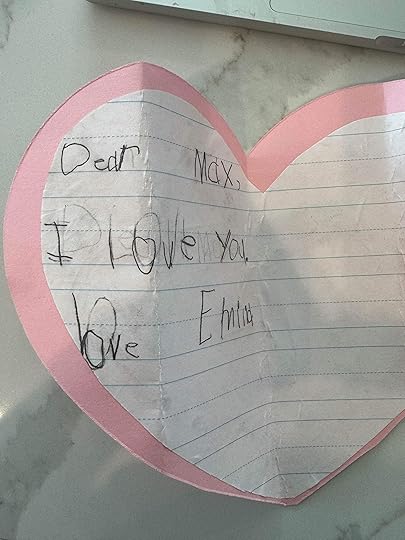 Dear Max,
I love you
love Emma